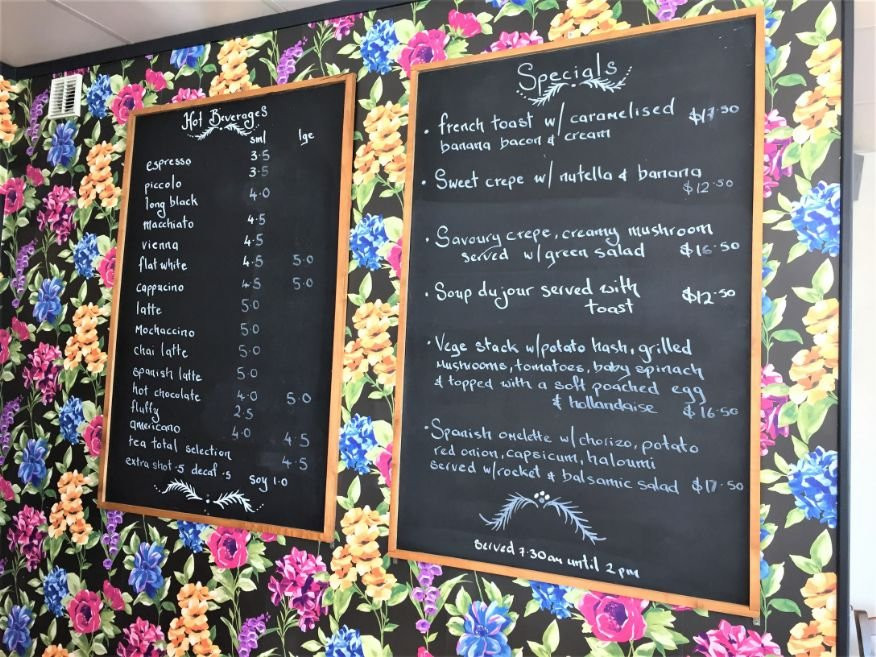 Hot Beverages
sml lge
espresso 3.5
piccolo 3.5
long black 4.0
macchiato 4.5
vienna 4.5
flat white 4.5 5.0
cappucino 4.5 5.0
latte 5.0
Mochaccino 5.0
chai latte 5.0
spanish latte 5.0
hot chocolate 4.0 5.0
fluffy 2.5
americano 4.0 4.5
tea total selection 4.5
extra shot .5 decaf .5 soy 1.0
Specials
• french toast w/ caramelised $17.50
banana bacon & cream
• Sweet crepe w/ nutella & banana
$12.50
• Savoury crepe, creamy mushroom
served w/green salad $16.50
• Soup du jour served with $12.50
toast
• Vege stack w/potato hash, grilled
mushrooms, tomatoes, baby spinach
& topped with a soft poached egg
& hollandaise $16.50
• Spanish omelette w/chorizo, potato
red onion, capsicum, haloumi
served w/rocket & balsamic salad $17.50
served 7.30am until 2pm